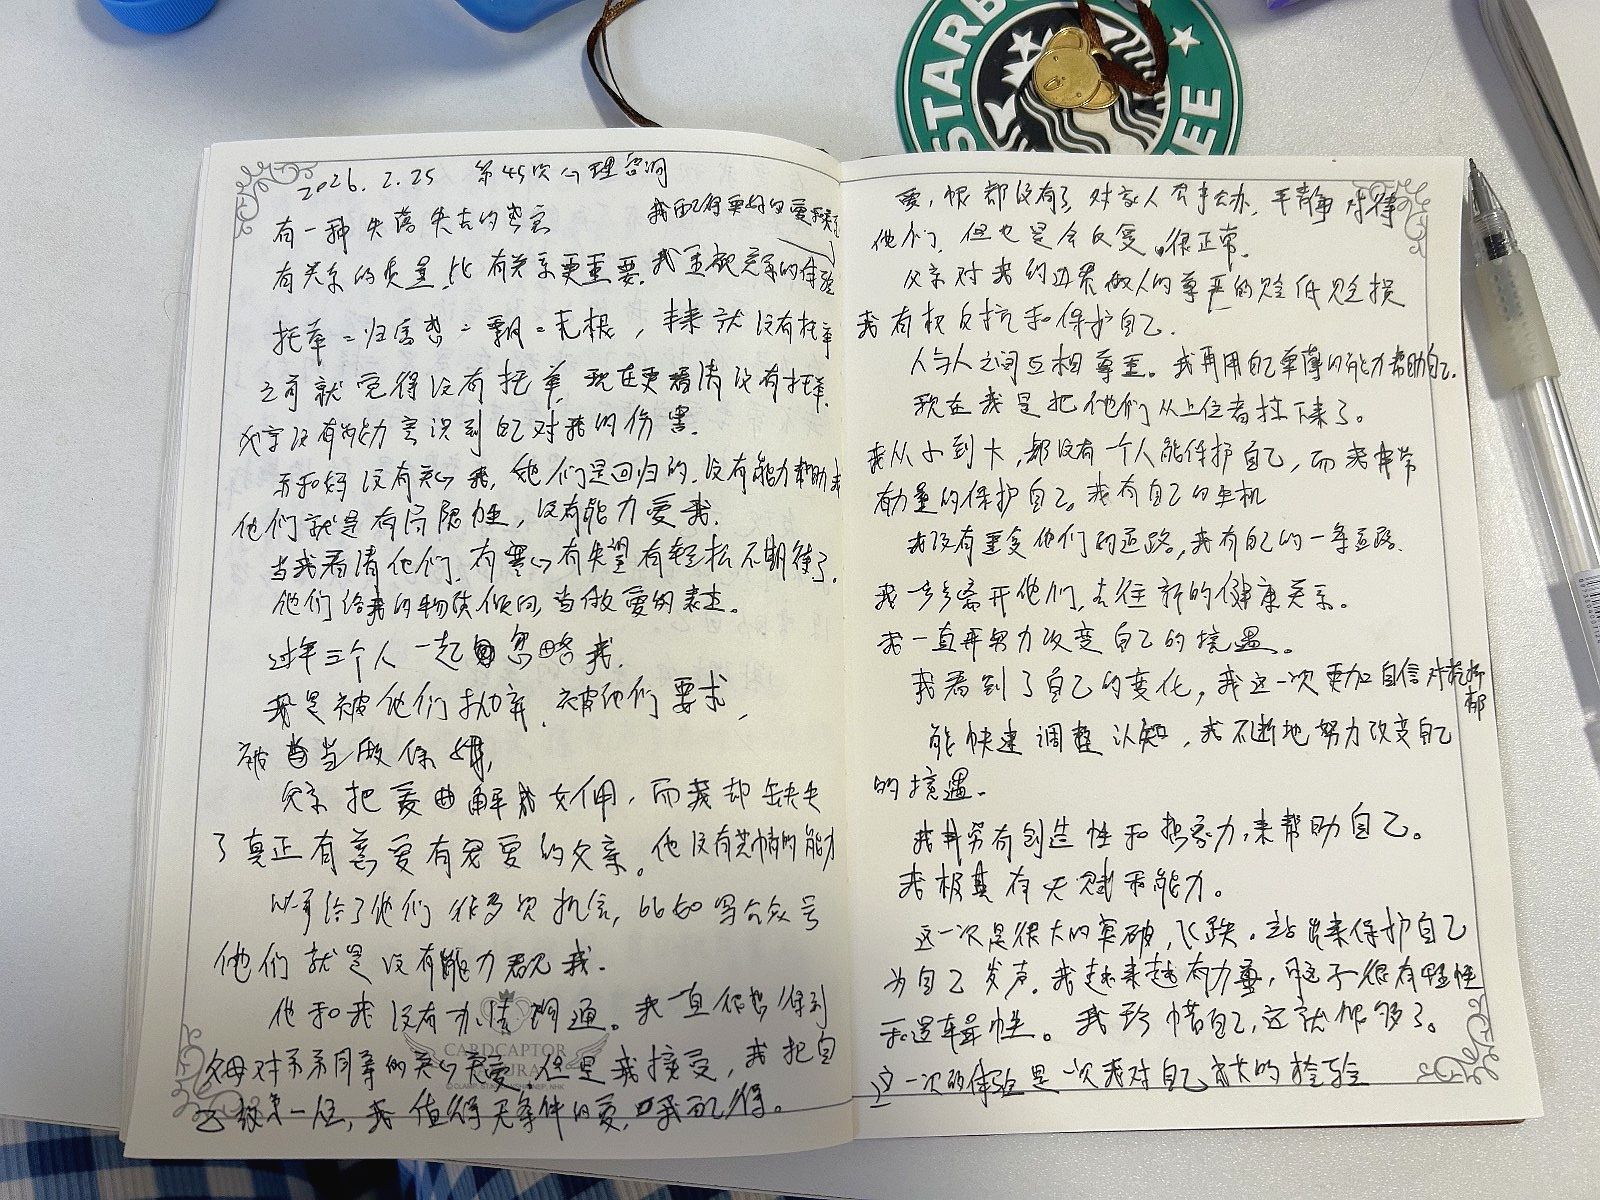 STARBU
EE
2026.2.25 第45次心理咨询
我配得更好的爱和
有一种失落失去的
有关系的质量比有关系更重要.我重视关系的体验
托举=归属感=飘=无根, 未来就没有托举
之前就觉得没有托举.现在更看清没有托举.
没有能力意识到自己对我的伤害.
和妈没有关心我,他们是回归的.没有能力帮助我
他们就是有局限性,没有能力爱我.
当我看清他们.有寒心有失望有轻松不期待了.
他们给我的物质 当做爱的表达.
过年三个人一起忽略我.
我是被他们抛弃.被他们要求,
被当做保姆,
父亲把爱曲解成女佣,而我却缺失
了真正有慈爱有宠爱的父亲。他没有共情的能力
以前给了他们很多次机会,比如写公众号
他们就是没有能力 我.
他和我没有办法沟通。我一直很想得到
父母对 同等的关心关爱,但是我接受,我把自
己放第一位,我值得无条件的爱,我配得。
CARDCAPTOR
爱,恨都没有了,对家人公事公办.平静对待
他们.但也是会反复.很正常.
父亲对我的边界做人的尊严的贬低贬损
我有权反抗和保护自己.
人与人之间互相尊重。我再用自己单薄的能力帮助自己.
现在我是把他们从上位者拉下来了。
我从小到大,都没有一个人能保护自己,而我非常
有力量的保护自己。我有自己的生机
我没有重复他们的道路,我有自己的一条道路.
我一步步离开他们,去往新的健康关系。
我一直再努力改变自己的境遇。
我看到了自己的变化,我这一次更加自信对抗抑郁
能快速调整认知,我不断地努力改变自己
的境遇.
我再另有创造性和想象力,来帮助自己。
我极具有天赋和能力。
这一次是很大的突破,飞跃。站出来保护自己
为自己发声.我越来越有力量,脑子很有理性
和逻辑性。我珍惜自己,这就够了。
这一次的体验是一次我对自己 大的检验